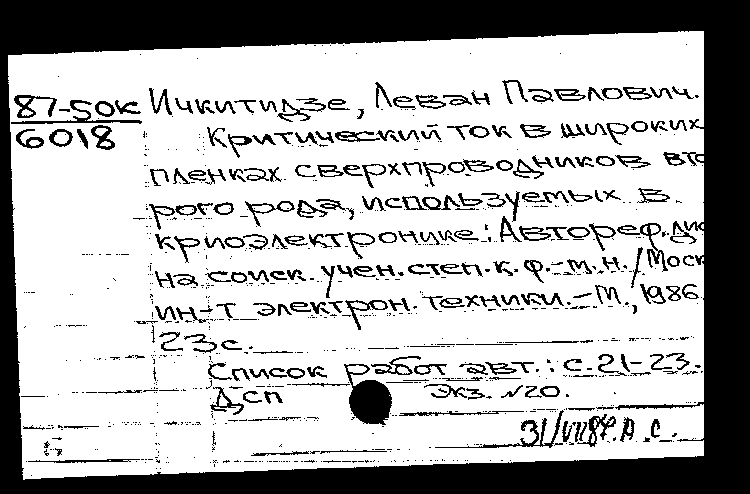 87-50к Ичкитидзе, Леван Павлович.
6018 Критический ток в широких
пленках сверхпроводников вто
рого рода, используемых в
криоэлектронике: Автореф. дис
на соиск. учен. степ. к. ф.-м. н. / Моск
ин-т электрон. техники. - М., 1986.
23 с.
Список работ авт.: с. 21-23.
Дсп Экз. №20.